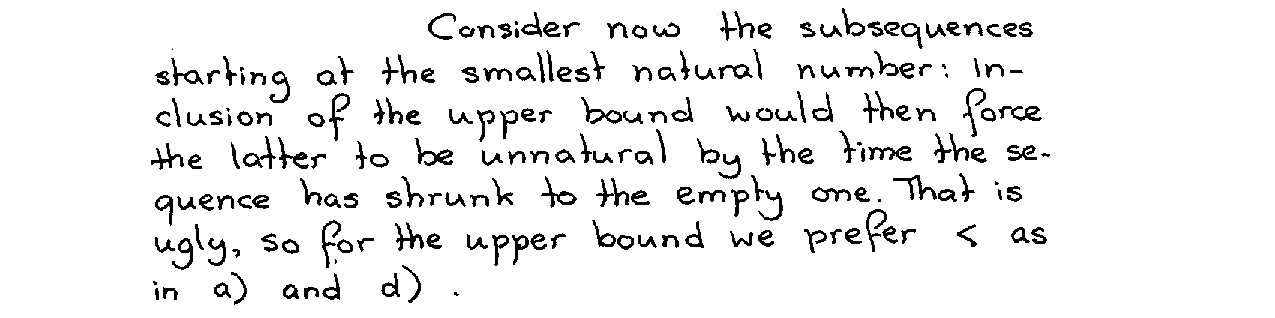 Consider now the subsequences
starting at the smallest natural number: in-
clusion of the upper bound would then force
the latter to be unnatural by the time the se-
quence has shrunk to the empty one. That is
ugly, so for the upper bound we prefer < as
in a) and d) .